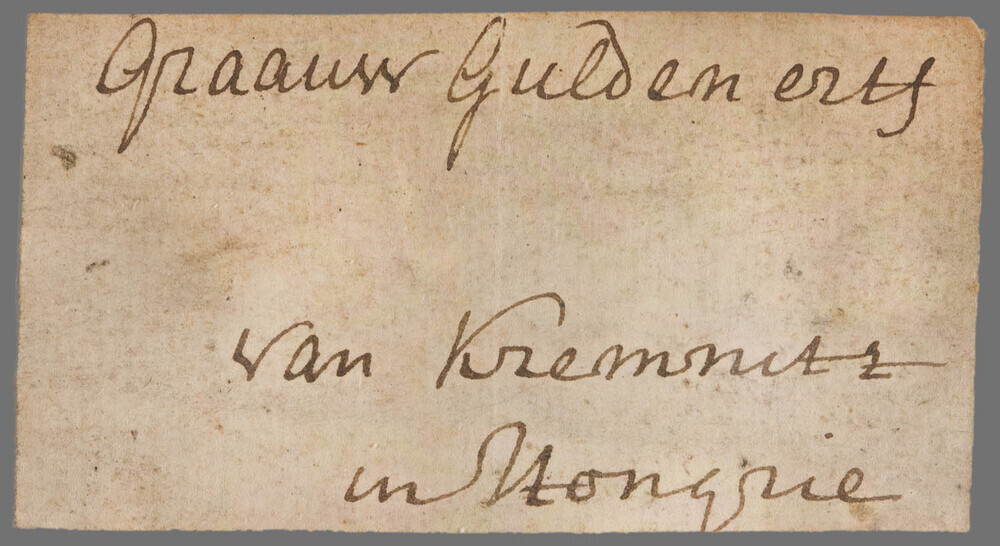 Graauw Gulden erts
van Kremnitz
in Hongrie